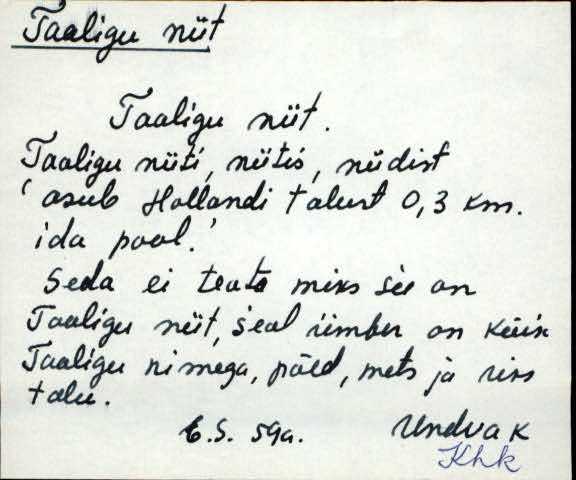 Taaligu niit
Taaligu niit.
Taaligu niiti, niitis, niidist
'asub Hollandi talust 0,3 km.
ida pool.'
Seda ei teata miks see on
Taaligu niit, seal ümber on kõik
Taaligu nimega, põld, mets ja üks
talu.
6.S. 59a. Undva k
Khk